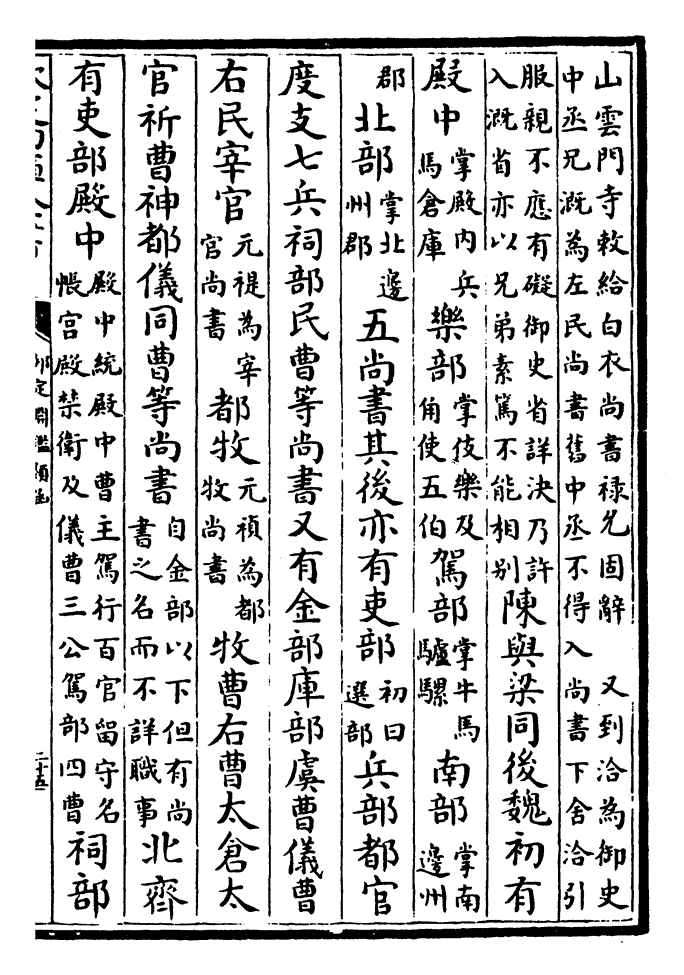 山雲門寺敕給白衣尚書禄允固辭 又到洽為御史
中丞兄溉為左民尚書舊中丞不得入尚書下舍洽引
服親不應有礙御史省詳決乃許
入溉省亦以兄弟素篤不能相别
陳與梁同後魏初有
殿中
掌殿内兵
馬倉庫
樂部
掌伎樂及
角使五伯
駕部
掌牛馬
驢騾
南部
掌南
邊州
郡
北部
掌北邊
州郡
五尚書其後亦有吏部
初曰
選部
兵部都官
度支七兵祠部民曹等尚書又有金部庫部虞曹儀曹
右民宰官
元禔為宰
官尚書
都牧
元禎為都
牧尚書
牧曹右曹太倉太
官祈曹神都儀同曹等尚書
自金部以下但有尚
書之名而不詳職事
北齊
有吏部殿中
殿中統殿中曹主駕行百官留守名
帳宫殿禁衛及儀曹三公駕部四曹
祠部
御定淵鑑類函
二十五